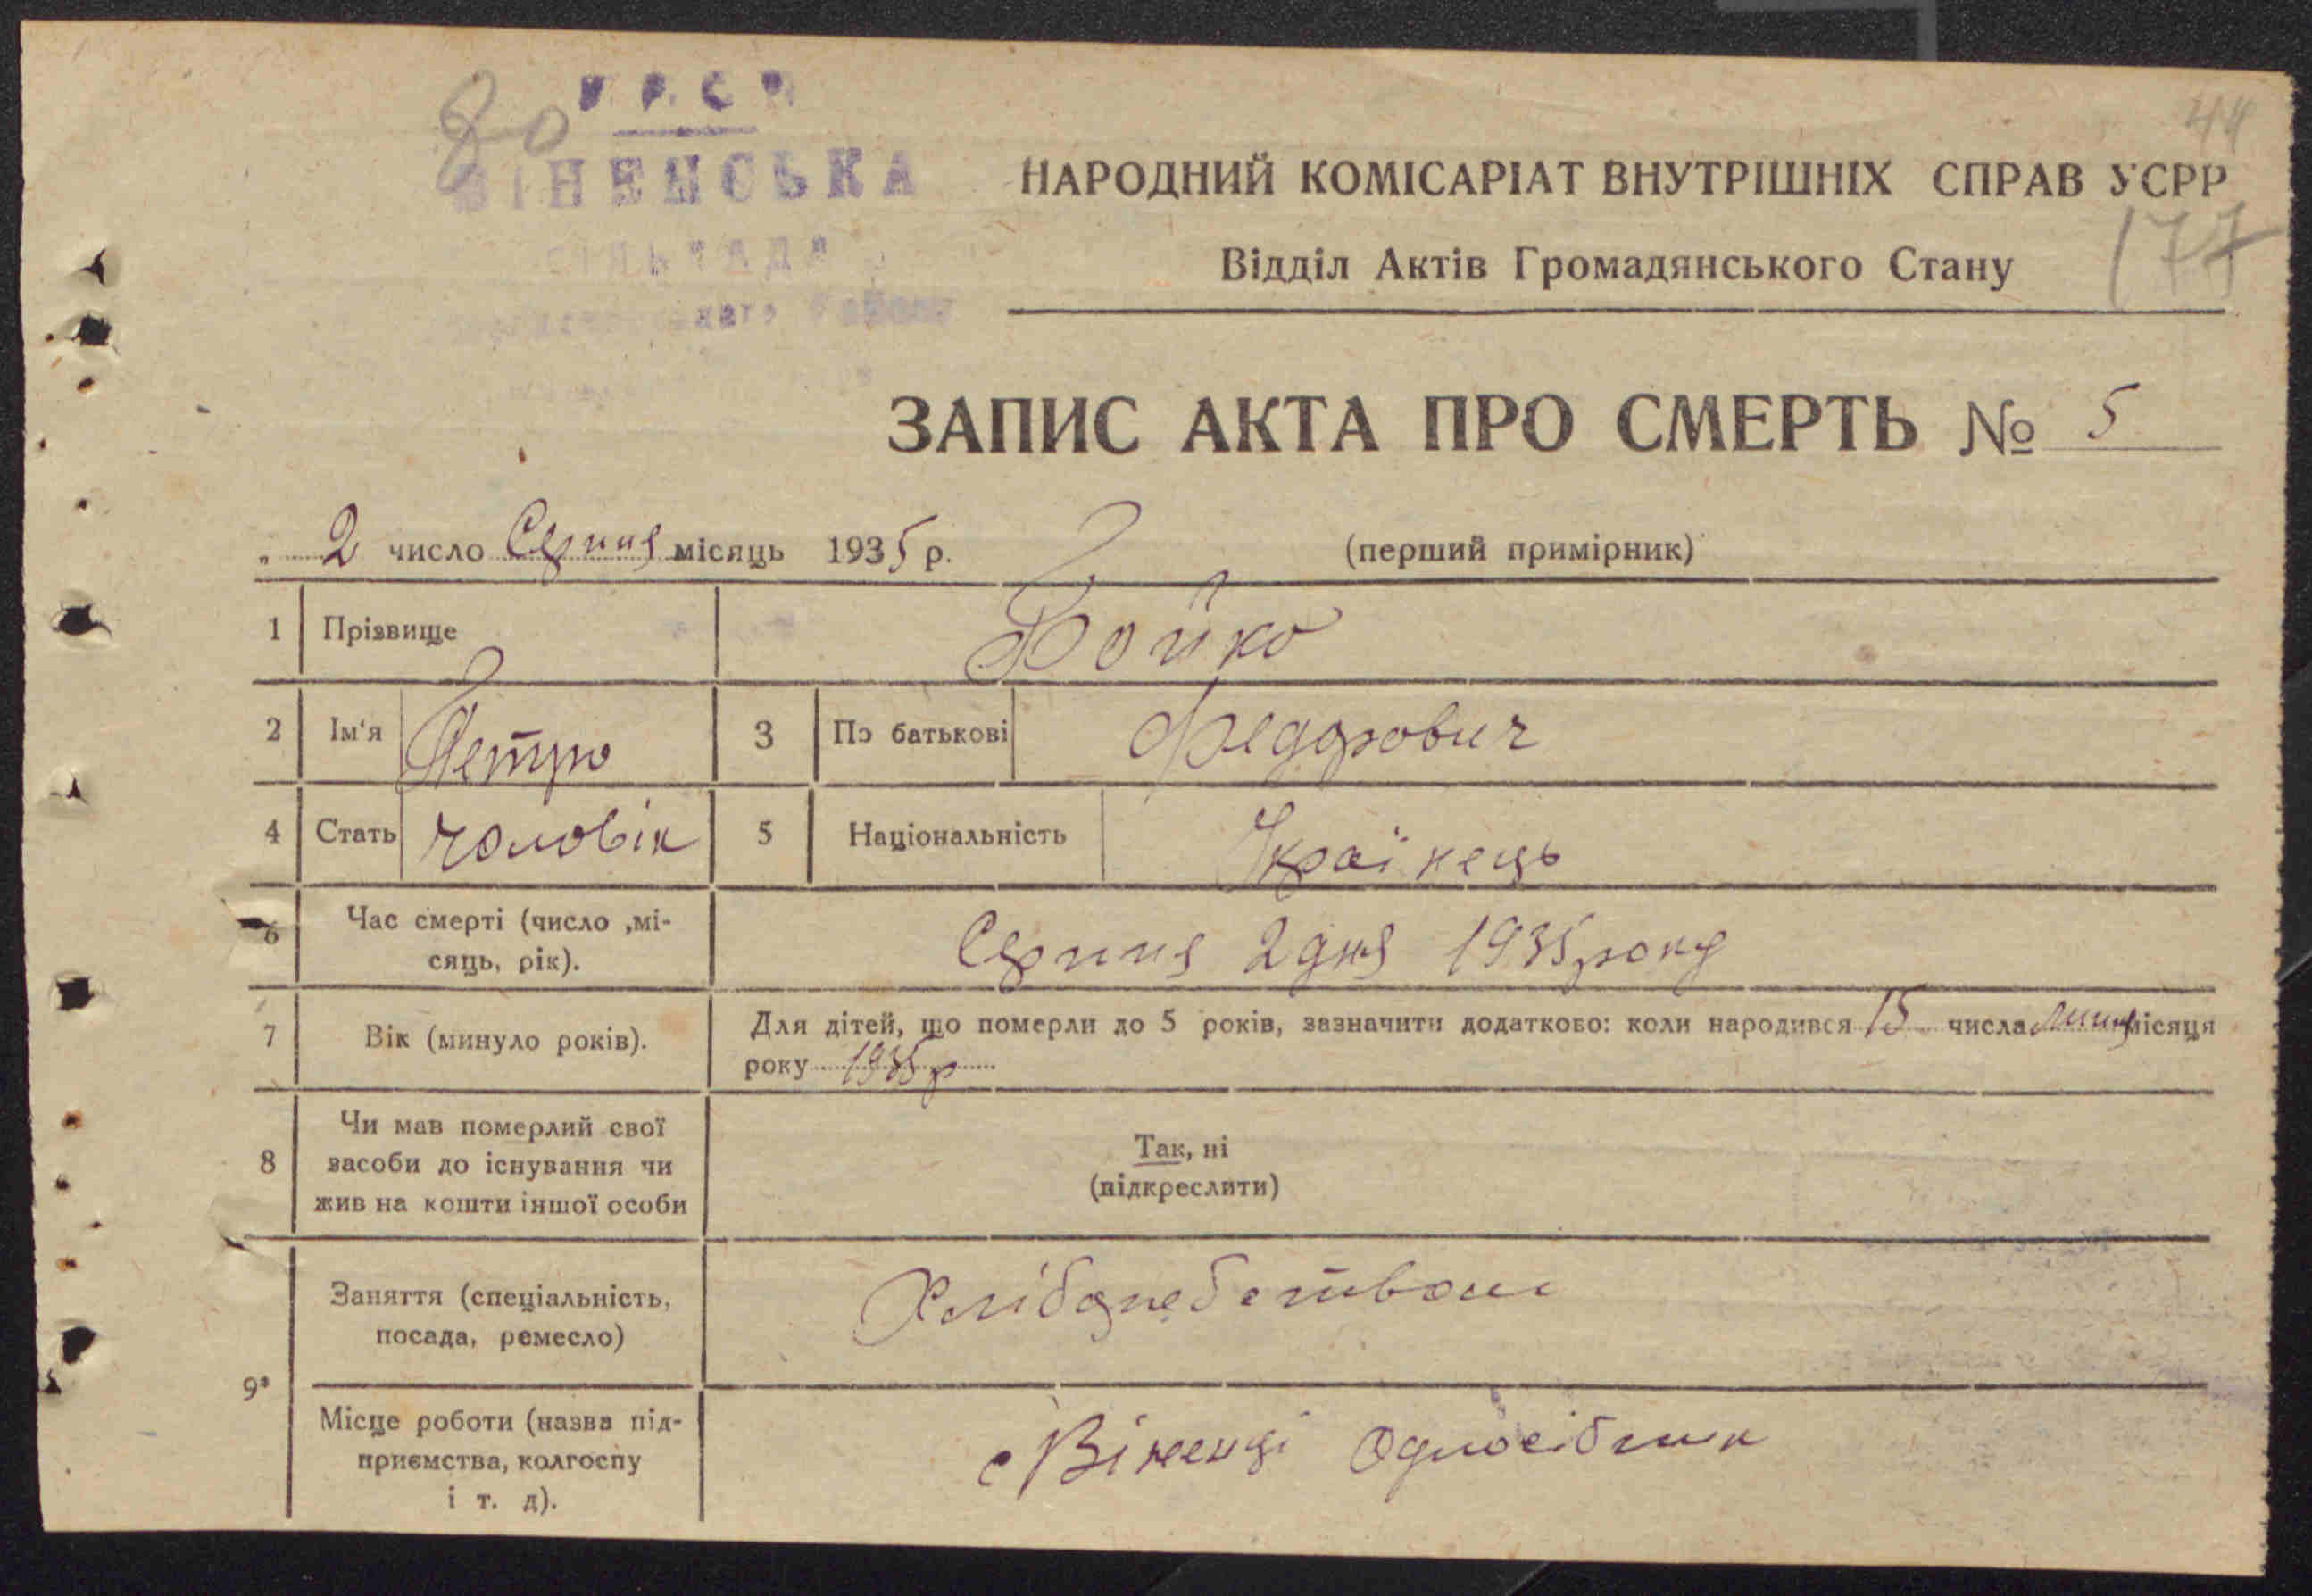 80
УРСР
ВІНЕНСЬКА
СІЛЬРАДА
44
НАРОДНИЙ КОМІСАРІАТ ВНУТРІШНІХ СПРАВ УСРР
177
Відділ Актів Громадянського Стану
ЗАПИС АКТА ПРО СМЕРТЬ № 5
„ 2 число Серпня місяць 1935 р. (перший примірник)
1 Прізвище Бойко
2 Ім'я Петро 3 По батькові Федорович
4 Стать чоловік 5 Національність Українець
6 Час смерті (число ,мі-
сяць, рік). Серпня 2 дня 1935 року
7 Вік (минуло років). Для дітей, що померли до 5 років, зазначити додатково: коли народився 15 числа липня місяця
року 1935 р
8 Чи мав померлий свої
засоби до існування чи
жив на кошти іншої особи
Так, ні
(підкреслити)
9 Заняття (спеціальність,
посада, ремесло)
Місце роботи (назва під-
приємства, колгоспу
і т. д).
с Віненці Одноосібник